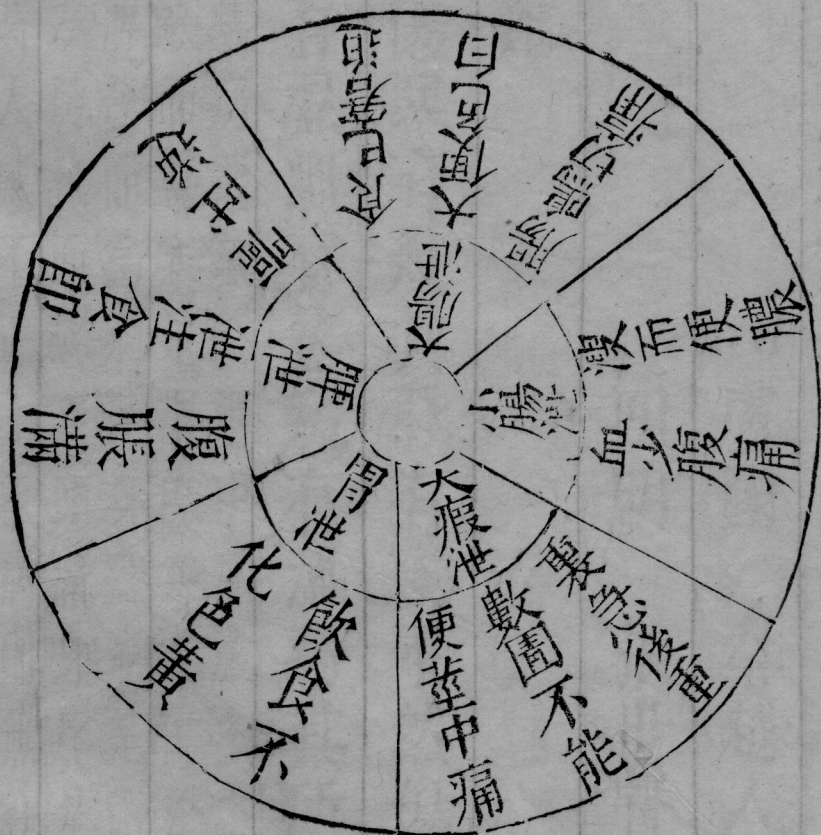 胃泄
飲食不
化色黃
脾泄
腹脹滿
泄注食即
嘔吐逆
大腸泄
食已窘迫
大便色白
腸鳴切痛
小腸泄
溲而便膿
血少腹痛
大瘕泄
裏急後重
數圊不能
便莖中痛